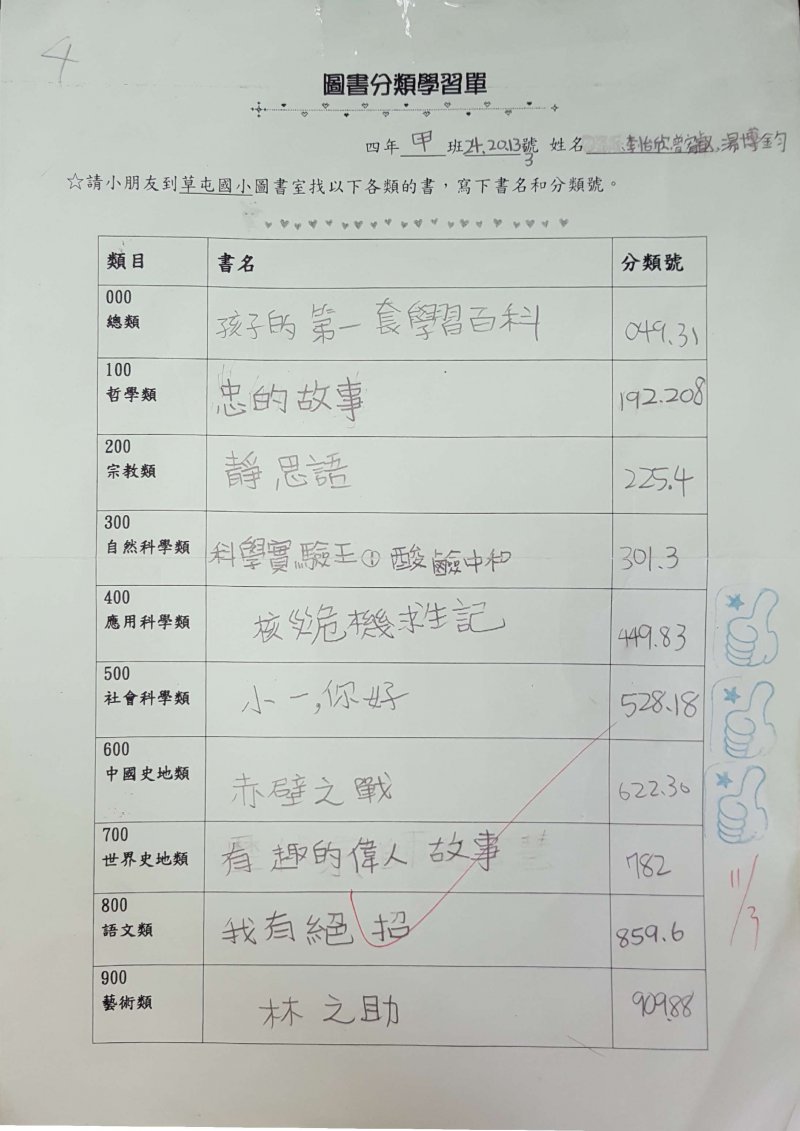 4
圖書分類學習單
四年 甲 班 24.20.13號 姓名 李怡欣 湯博鈞
3
☆請小朋友到草屯國小圖書室找以下各類的書，寫下書名和分類號。
類目 書名 分類號
000
總類 孩子的第一套學習百科 049.31
100
哲學類 忠的故事 192.208
200
宗教類 靜思語 225.4
300
自然科學類 科學實驗王① 酸鹼中和 301.3
400
應用科學類 核災危機求生記 449.83
500
社會科學類 小一,你好 528.18
600
中國史地類 赤壁之戰 622.30
700
世界史地類 有趣的偉人故事 782
800
語文類 我有絕招 859.6
900
藝術類 林之助 909.88
11/3